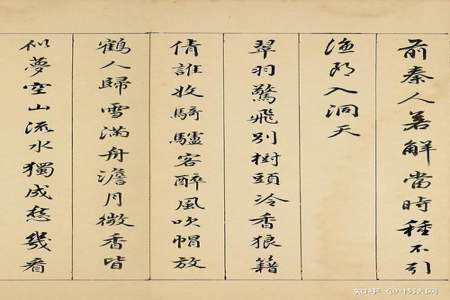 前秦人若解當時種不引
漁郎入洞天
翠羽驚飛別樹頭冷香狼籍
倩誰收騎驢客醉風吹帽放
鶴人歸雪滿舟澹月微香皆
似夢空山流水獨成愁幾看
知乎